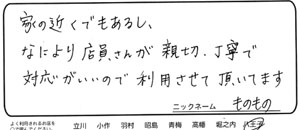 家の近くでもあるし、
なにより店員さんが親切、丁寧で
対応がいいので利用させて頂いてます
ニックネーム ものもの
よく利用されるお店を
立川 小作 羽村 昭島 青梅 高幡 堀之内 八王子